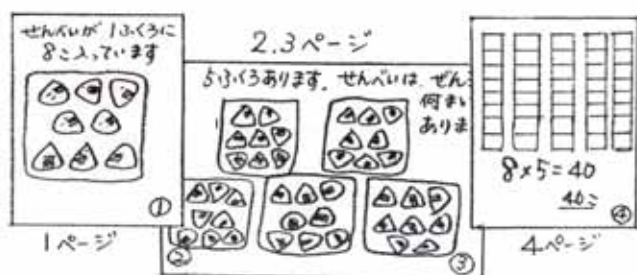 せんべいが1ふくろに
8こ入っています
①
1ページ
2.3ページ
5ふくろあります。せんべいは、ぜん
何まい
ありま
②
③
8×5=40
40こ
④
4ページ